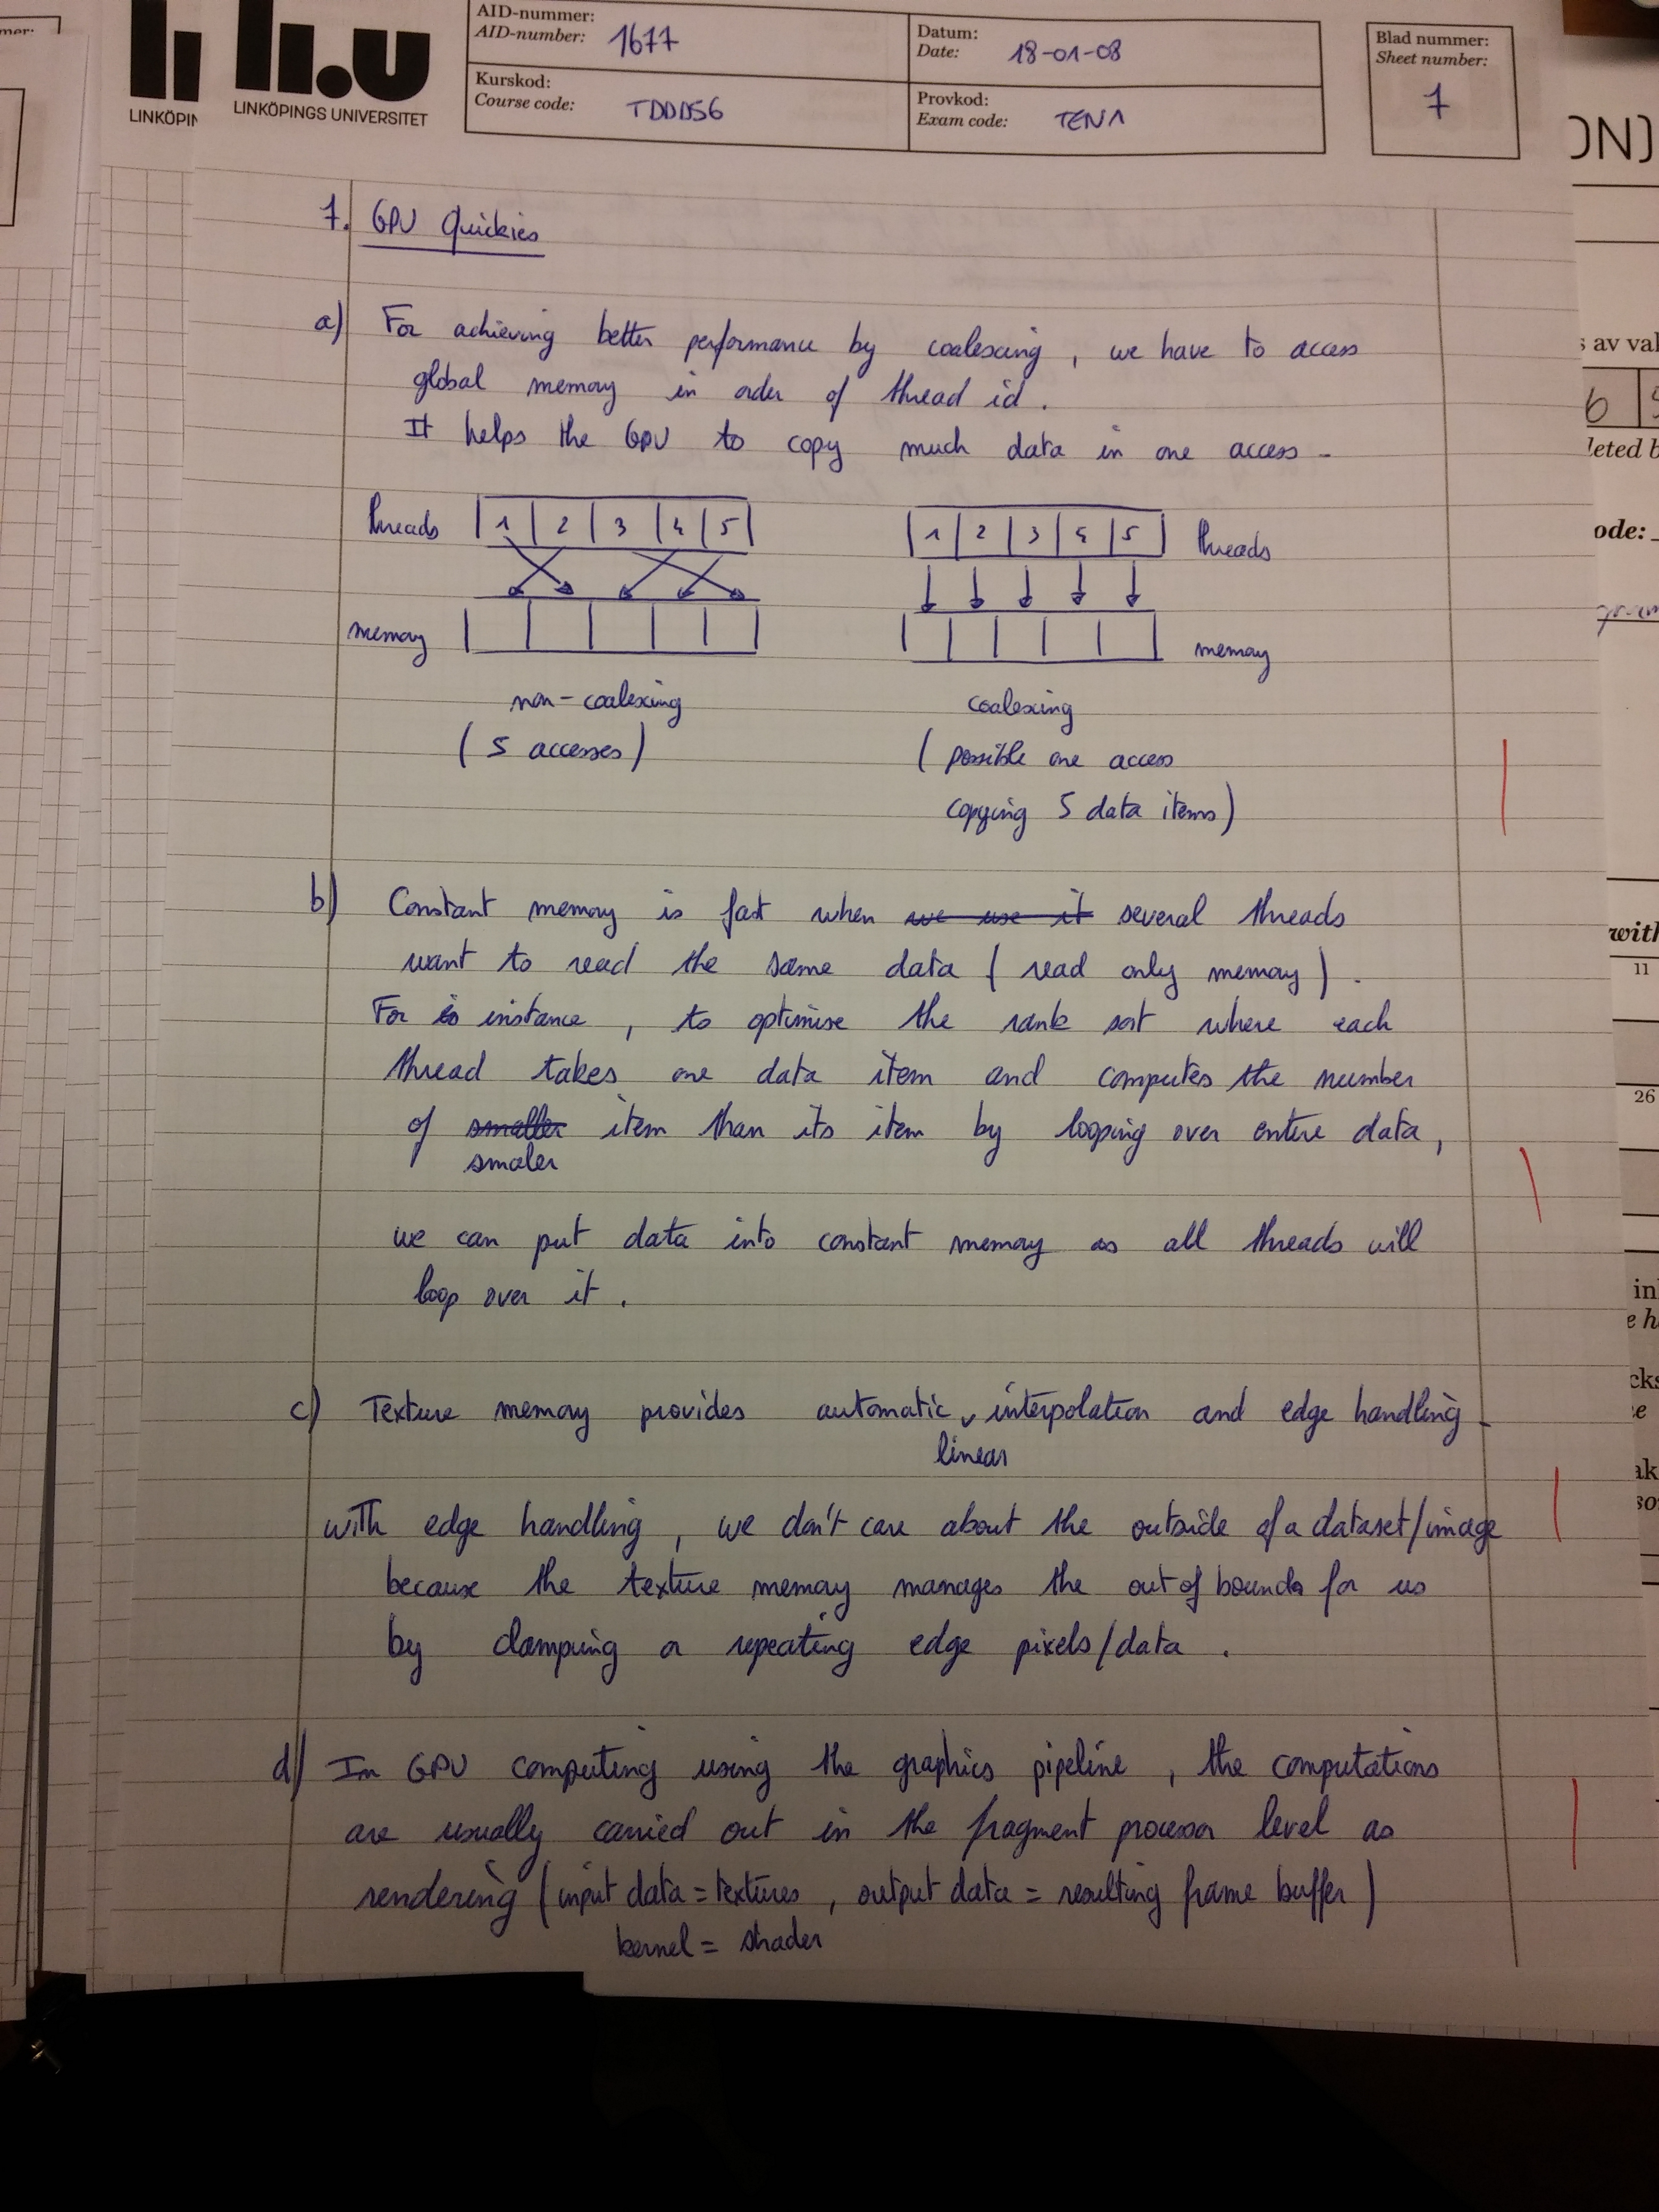 AID-nummer:
AID-number: 1677
Datum:
Date: 18-01-08
Blad nummer:
Sheet number:
7
Kurskod:
Course code: TDDD56
Provkod:
Exam code: TEN1
LINKÖPIN
LINKÖPINGS UNIVERSITET
7. GPU Quickies
a) For achieving better performance by coalescing, we have to access
global memory in order of thread id.
It helps the GPU to copy much data in one access.
threads 1 2 3 4 5
1 2 3 4 5 threads
memory
memory
non-coalexing
(5 accesses)
coalexing
(possible one access
copying 5 data items)
b) Constant memory is fast when we use it several threads
want to read the same data (read only memory).
For instance, to optimise the rank sort where each
thread takes one data item and computes the number
of smaller item than its item by looping over entire data,
smaler
we can put data into constant memory as all threads will
loop over it.
c) Texture memory provides automatic interpolation and edge handling.
linear
With edge handling, we don't care about the outside of a dataset/image
because the texture memory manages the out of bounds for us
by clamping or repeating edge pixels/data.
d) In GPU computing using the graphics pipeline, the computations
are usually carried out in the fragment processor level as
rendering (input data = textures, output data = resulting frame buffer)
kernel = shader
mer:
ON)
s av val
6
leted b
ode:
with
11
26
in
e h
cks
e
ak
so